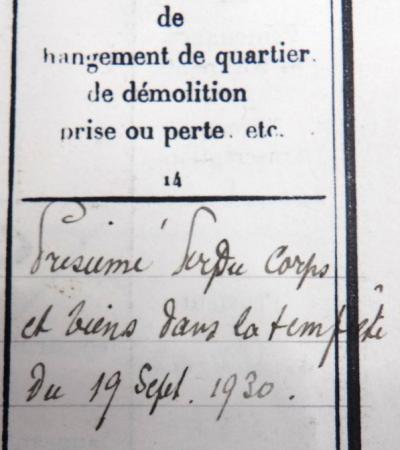 de
hangement de quartier.
de démolition
prise ou perte. etc.
14
Présumé Perdu Corps
et biens dans la tempête
du 19 Sept. 1930.